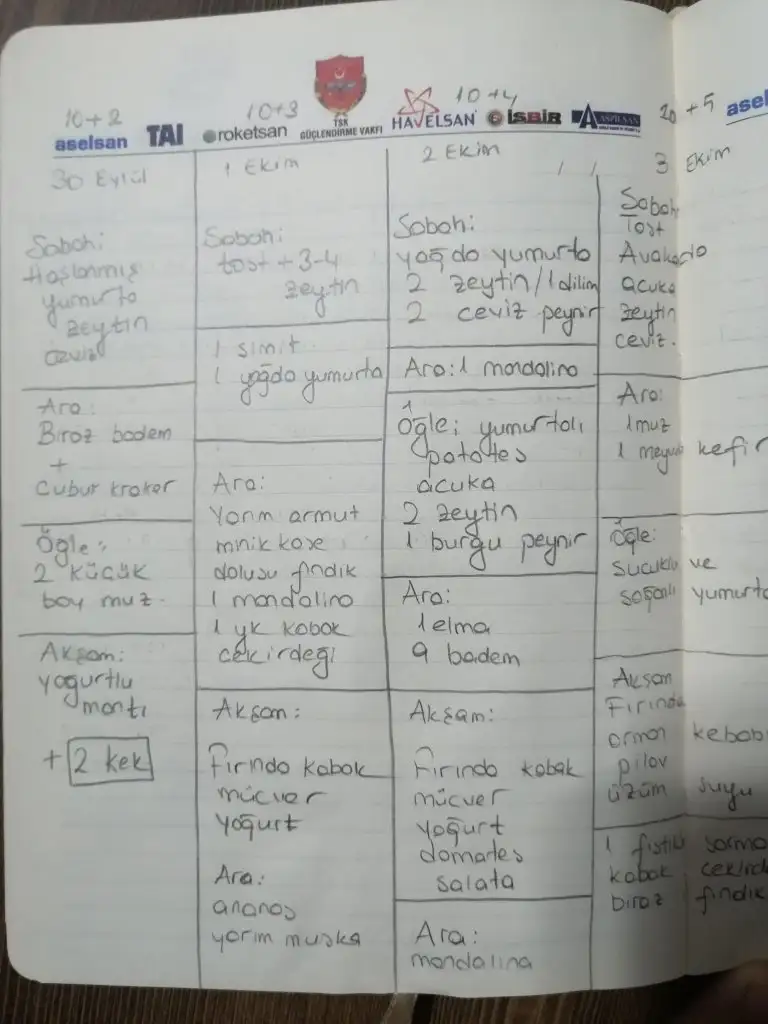 10+2
10+3
10+4
20+5
aselsan TAI roketsan TSK GÜÇLENDİRME VAKFI HAVELSAN İŞBİR ASPİLSAN asel
30 Eylül
Sabah:
Haşlanmış
yumurta
zeytin
ceviz
Ara:
Biraz badem
+
Çubuk kraker
Öğle:
2 küçük
boy muz.
Akşam:
yoğurtlu
mantı
+ 2 kek
1 Ekim
Sabah:
tost + 3-4
zeytin
1 simit
1 yağda yumurta
Ara:
Yarım armut
minik kase
dolusu fındık
1 mandalina
1 yk kabak
çekirdeği
Akşam:
Fırında kabak
mücver
yoğurt
Ara:
ananas
yarım muska
2 Ekim
Sabah:
yağda yumurta
2 zeytin / 1 dilim
2 ceviz peynir
Ara: 1 mandalina
Öğle: yumurtalı
patates
acuka
2 zeytin
1 burgu peynir
Ara:
1 elma
9 badem
Akşam:
Fırında kabak
mücver
yoğurt
domates
salata
Ara:
mandalina
3 Ekim
Sabah
Tost
Avakado
acuka
zeytin
ceviz.
Ara:
1 muz
1 meyveli kefir
Öğle:
sucuklu ve
soğanlı yumurta
Akşam
Fırında
orman kebabı
pilav
üzüm suyu
1 fıstıklı sarma
kabak çekird
biraz fındık